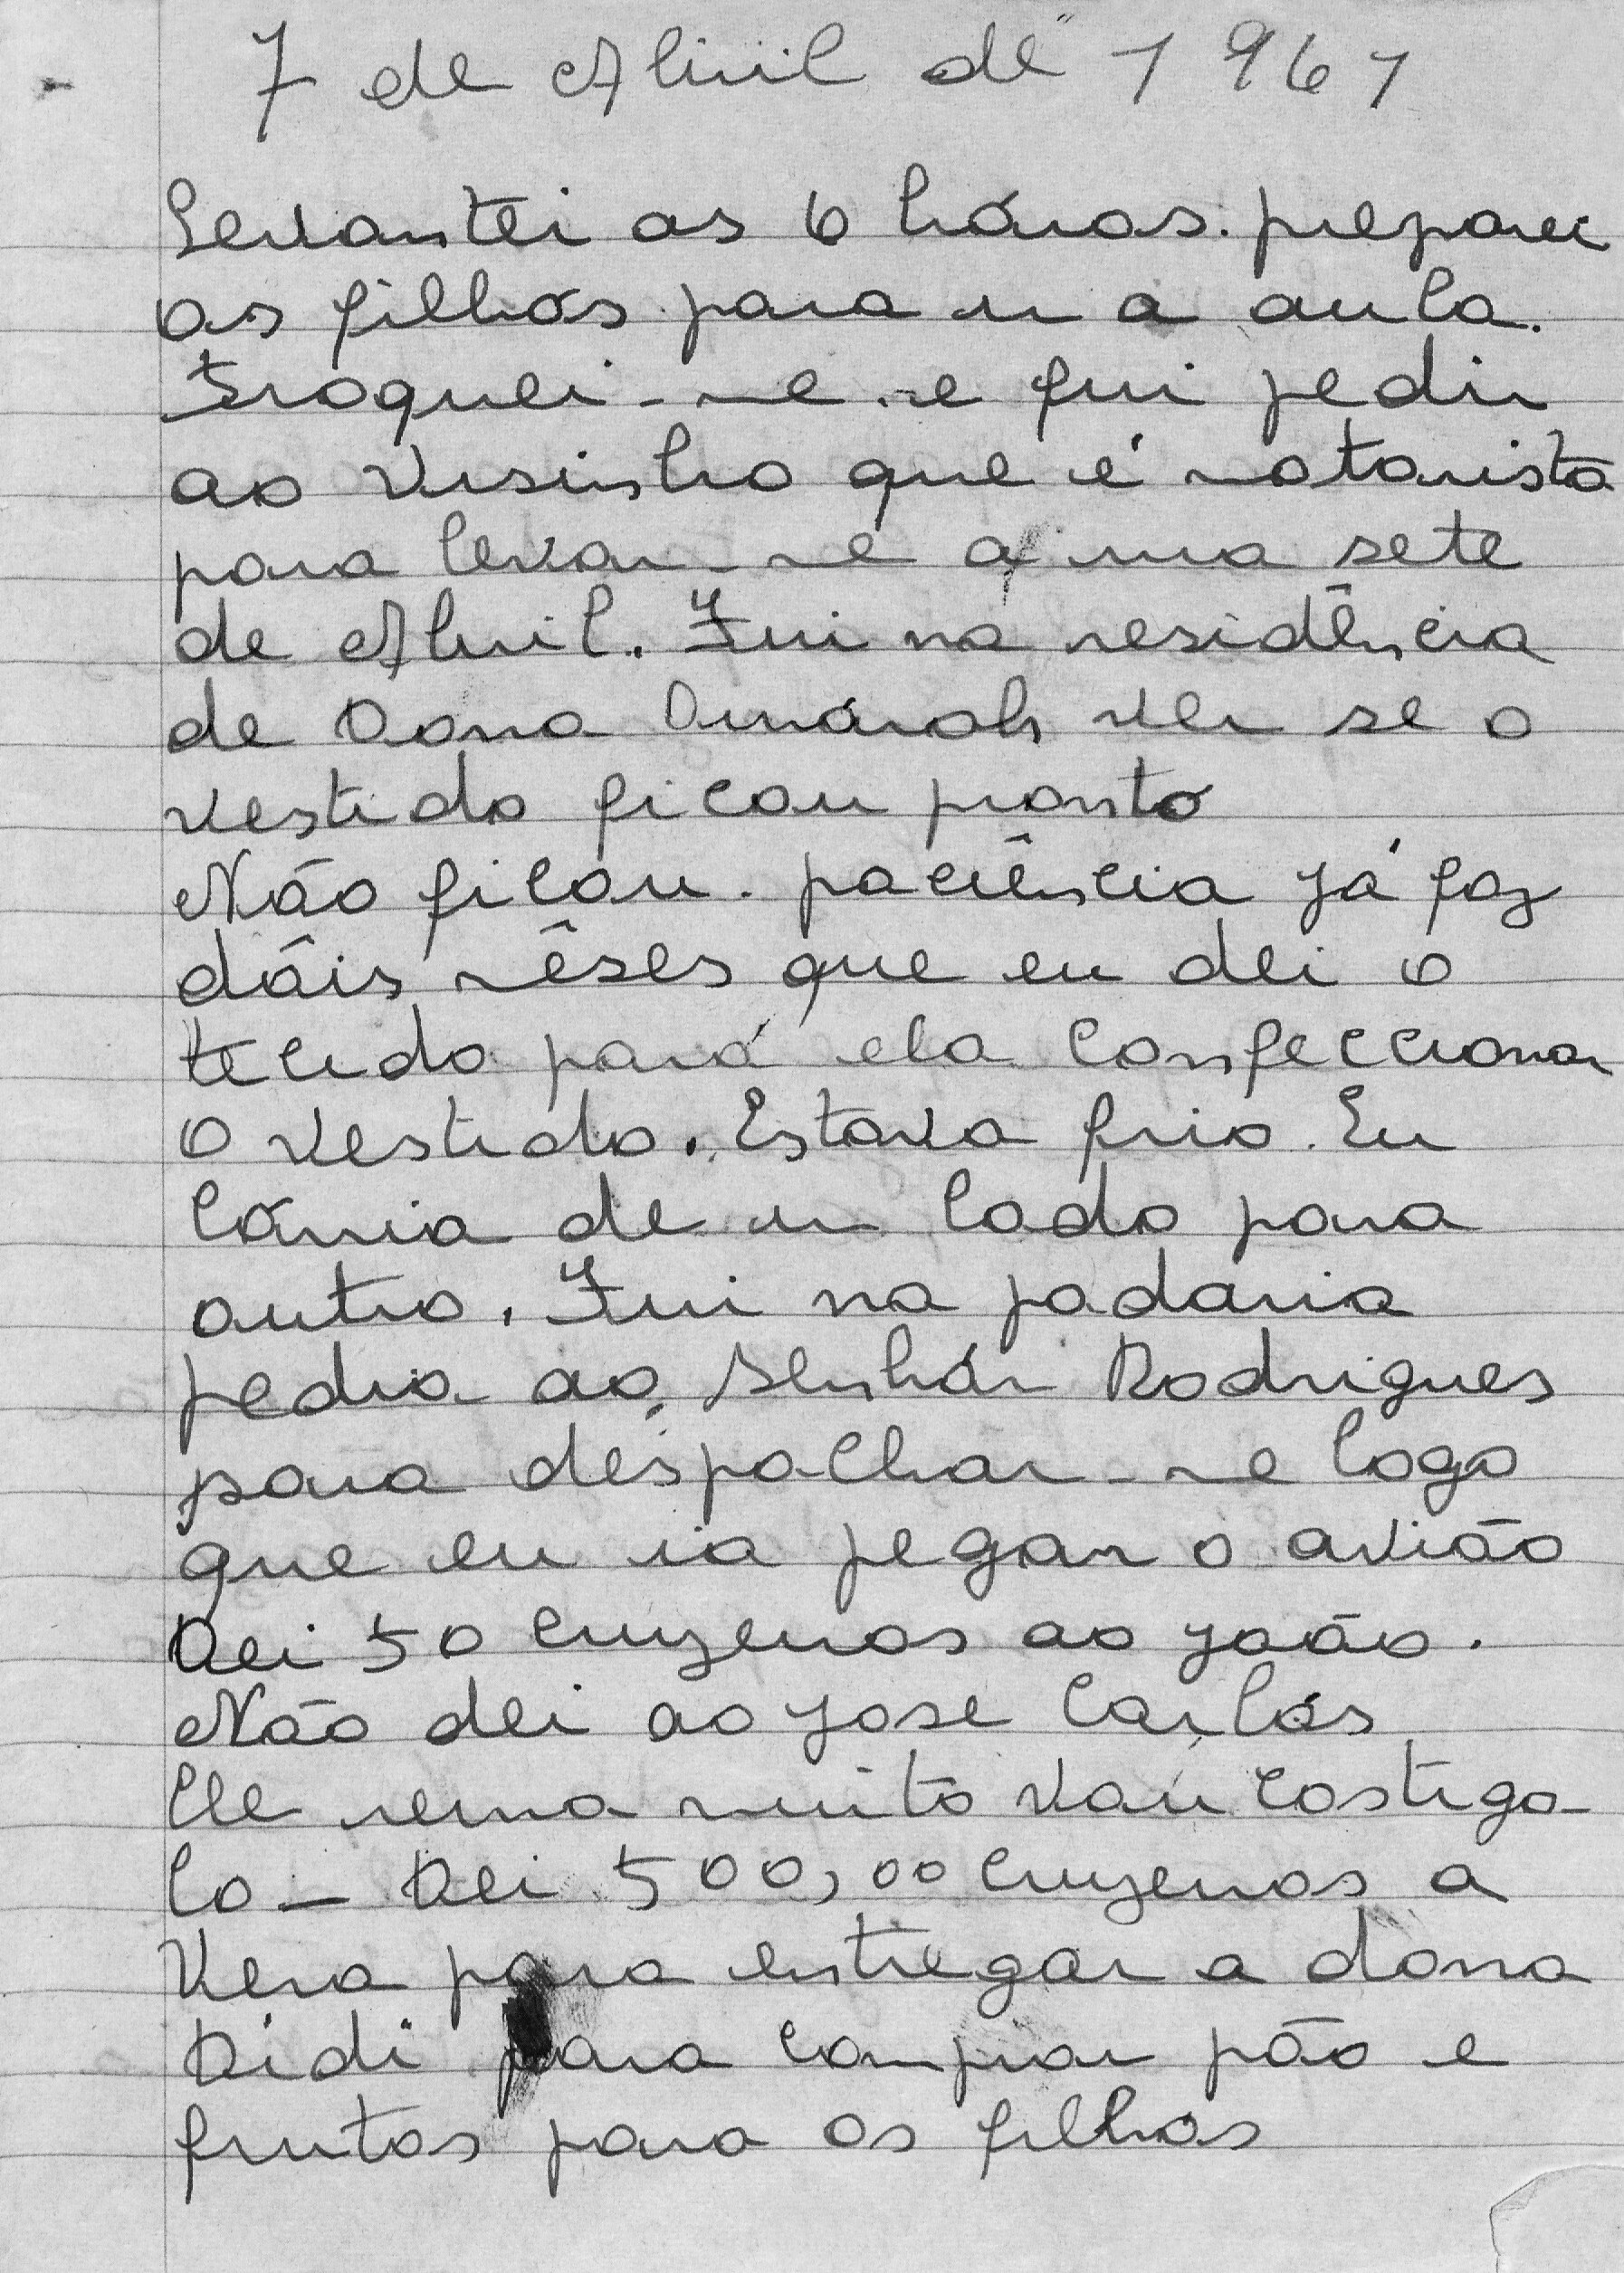 7 de Abril de 1961
Levantei as 6 hóras. preparei
os filhos para ir a aula.
Troquei-me e fui pedir
ao visinho que é motorista
para levar-me a rua sete
de Abril. Fui na residência
de Dona Dinárah ver se o
vestido ficou pronto
Não ficou. paciência já faz
dóis mêses que eu dei o
tecido pará ela confeccionar
o vestido. Estava frio. Eu
córria de um lado para
outro. Fui na padaria
pedia ao Senhór Rodrigues
para déspachar-me logo
que eu ia pegar o avião
Dei 50 cruzeiros ao João.
Não dei ao Jose Carlós
Ele reina muito vou castiga-
lo - Dei 500,00 cruzeiros a
Vera para entregar a dona
Didi para comprar pão e
frutas para os filhos